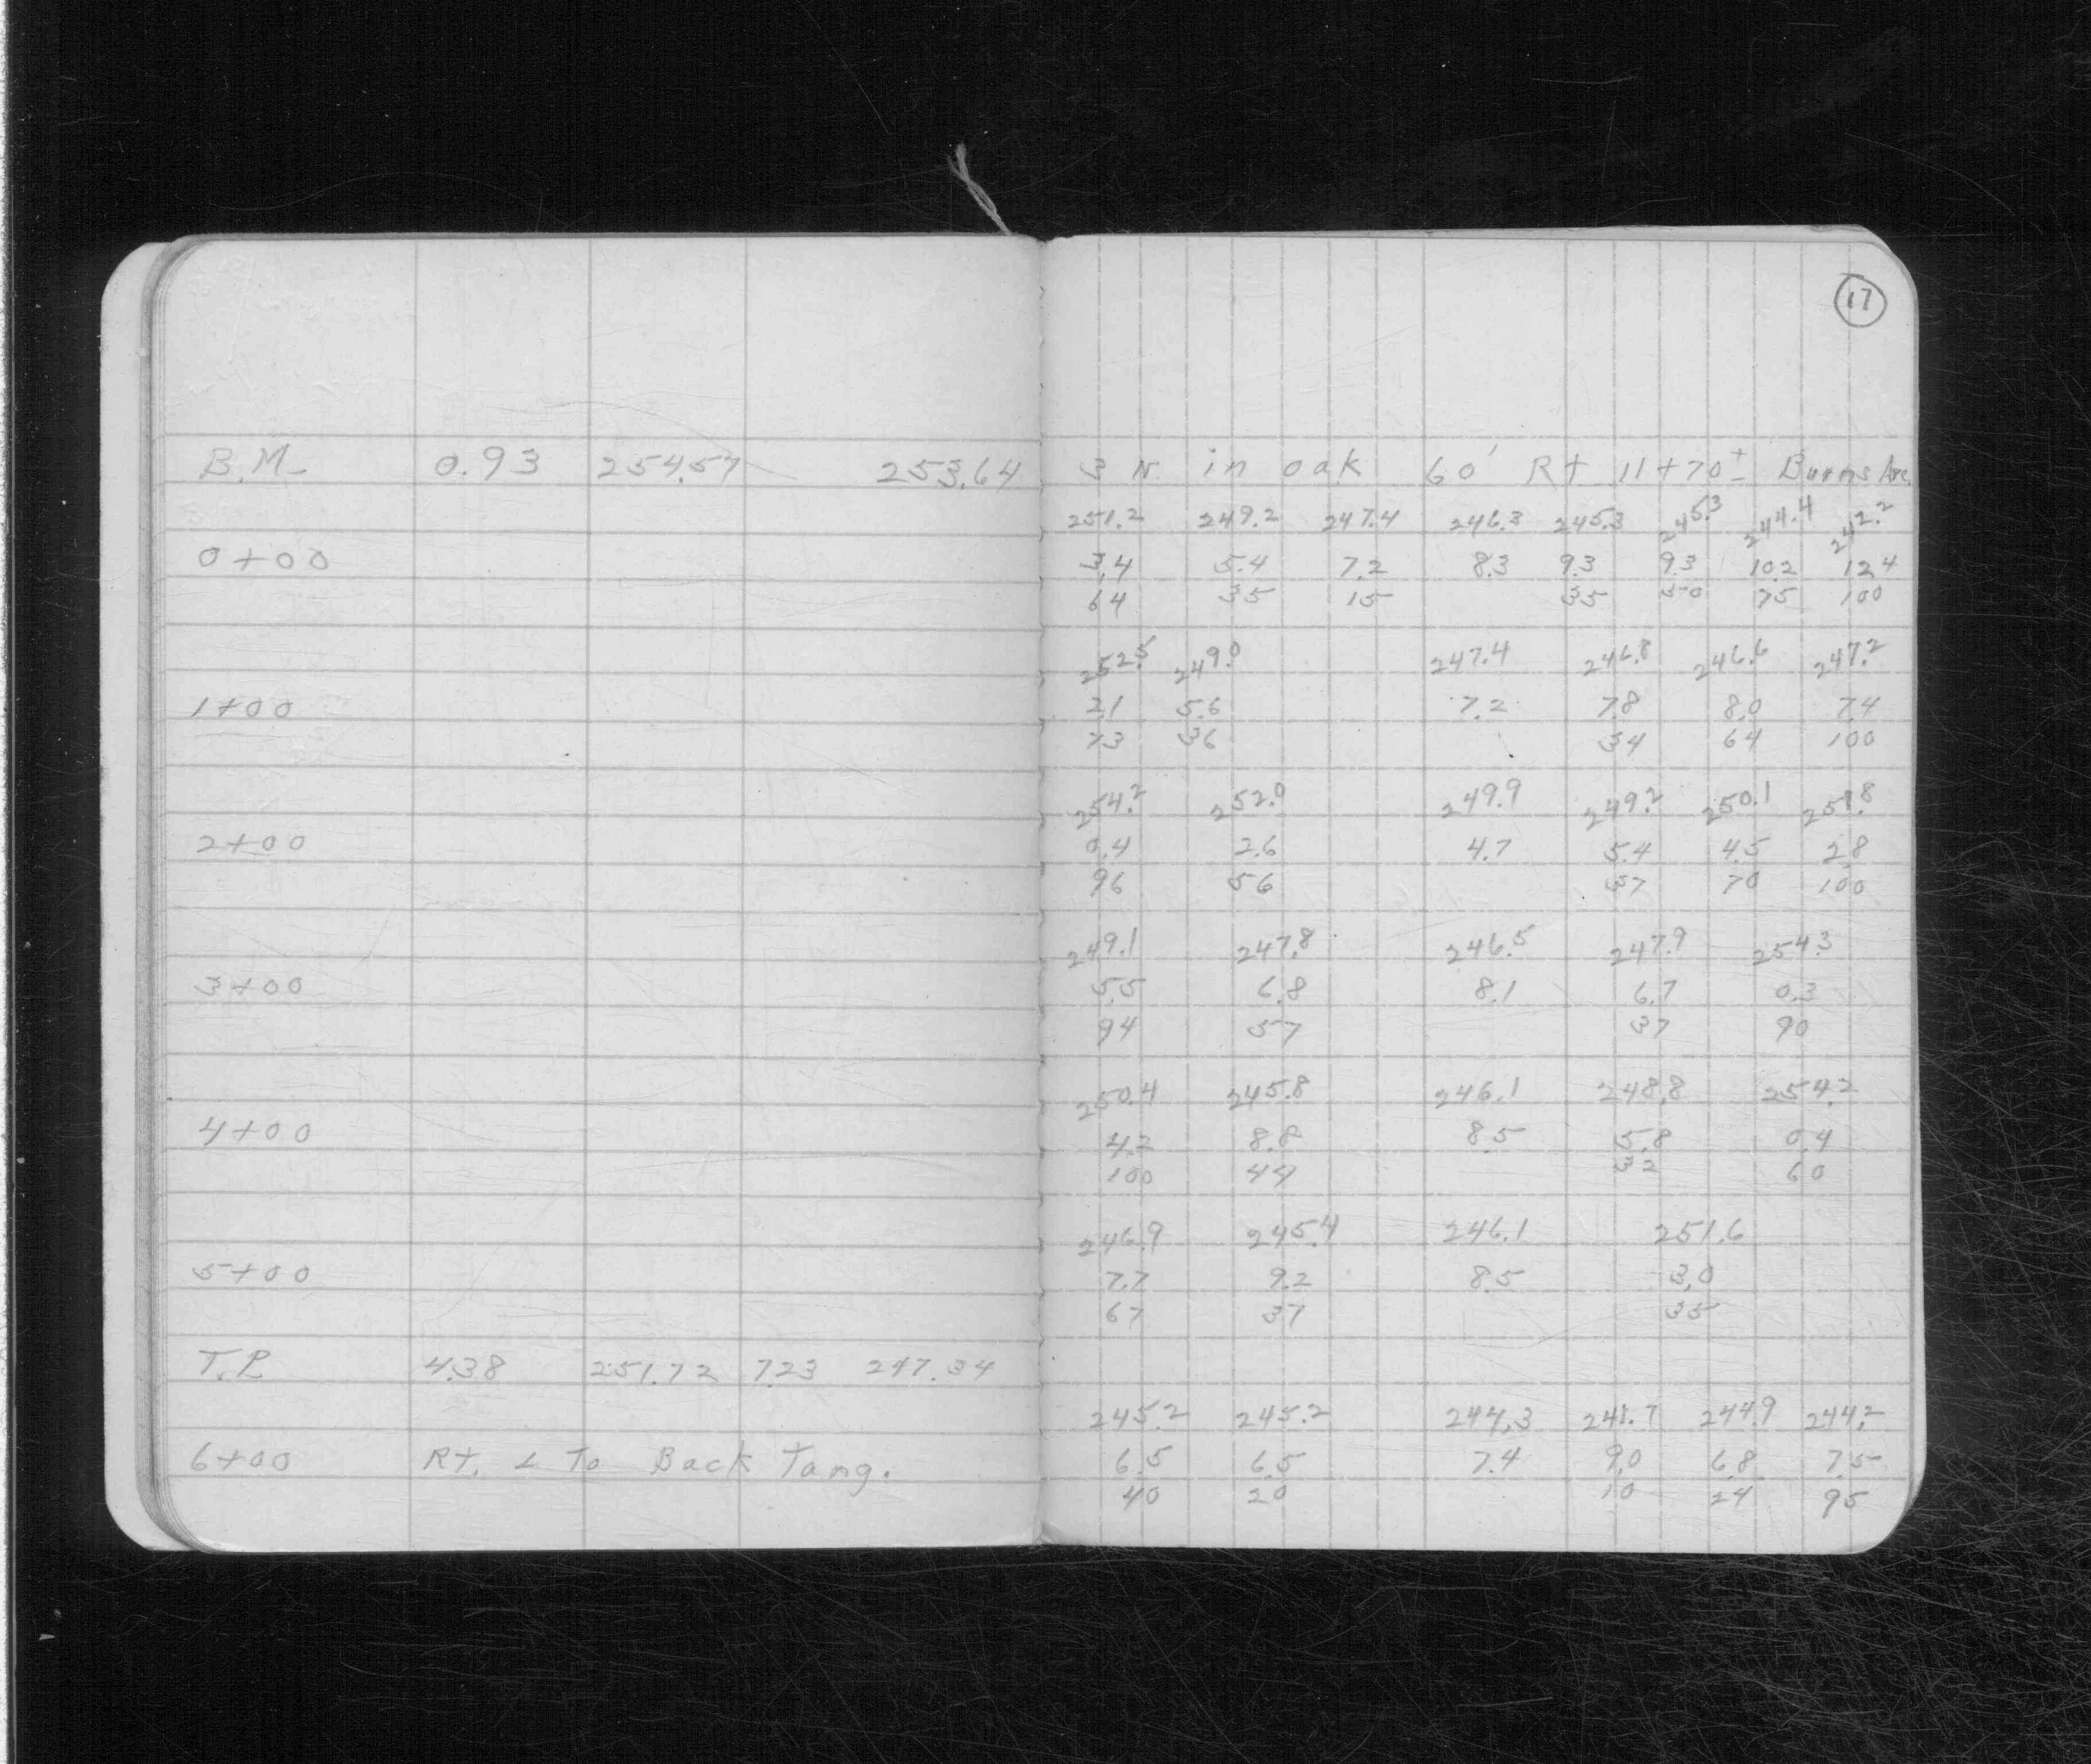 17
B.M. 0.93 254.57 253.64 3 N. in oak 60' Rt 11+70± Burns Ave.
251.2 249.2 247.4 246.3 245.3 245.3 244.4 242.2
0+00 3.4 5.4 7.2 8.3 9.3 9.3 10.2 12.4
64 35 15 35 50 75 100
252.5 249.0 247.4 246.8 246.6 247.2
1+00 2.1 5.6 7.2 7.8 8.0 7.4
73 36 34 64 100
254.2 252.0 249.9 249.2 250.1 251.8
2+00 0.4 2.6 4.7 5.4 4.5 2.8
96 56 37 70 100
249.1 247.8 246.5 247.9 254.3
3+00 5.5 6.8 8.1 6.7 0.3
94 57 37 90
250.4 245.8 246.1 248.8 254.2
4+00 4.2 8.8 8.5 5.8 0.4
100 44 32 60
246.9 245.4 246.1 251.6
5+00 7.7 9.2 8.5 3.0
67 37 35
T.P. 4.38 251.72 7.23 247.34
245.2 245.2 244.3 241.7 244.9 244.2
6+00 Rt. ∠ To Back Tang. 6.5 6.5 7.4 9.0 6.8 7.5
40 20 10 24 95